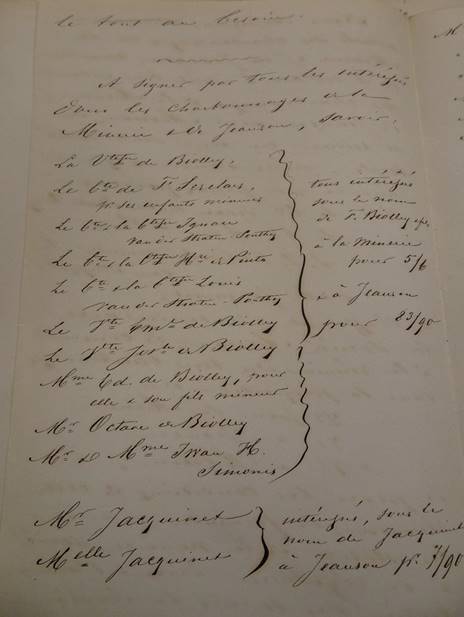 le tout au besoin.
A signer par tous les intéressés
dans les charbonnages de la
Minerie & de Jeanson, savoir,
La Vtesse de Biolley,
Le Cte de T'Serclaes,
pr ses enfants mineurs
Le Cte & la Ctesse Ignace
van der Straten-Ponthoz
Le Cte & la Ctesse Hri de Pinto
Le Cte & la Ctesse Louis
van der Straten-Ponthoz
Le Vte Emle de Biolley
Le Vte de Biolley
Mme Ed. de Biolley, pour
elle & son fils mineur
Mr Octave de Biolley
Mr & Mme Iwan H.
Simonis
tous intéressés
sous le nom
de F. Biolley & fils
à la Minerie
pour 5/6
& à Jeanson
pour 83/90
Mr Jacquinet
Melle Jacquinet
intéressés, sous le
nom de Jacquinet
à Jeanson pr 7/90
M